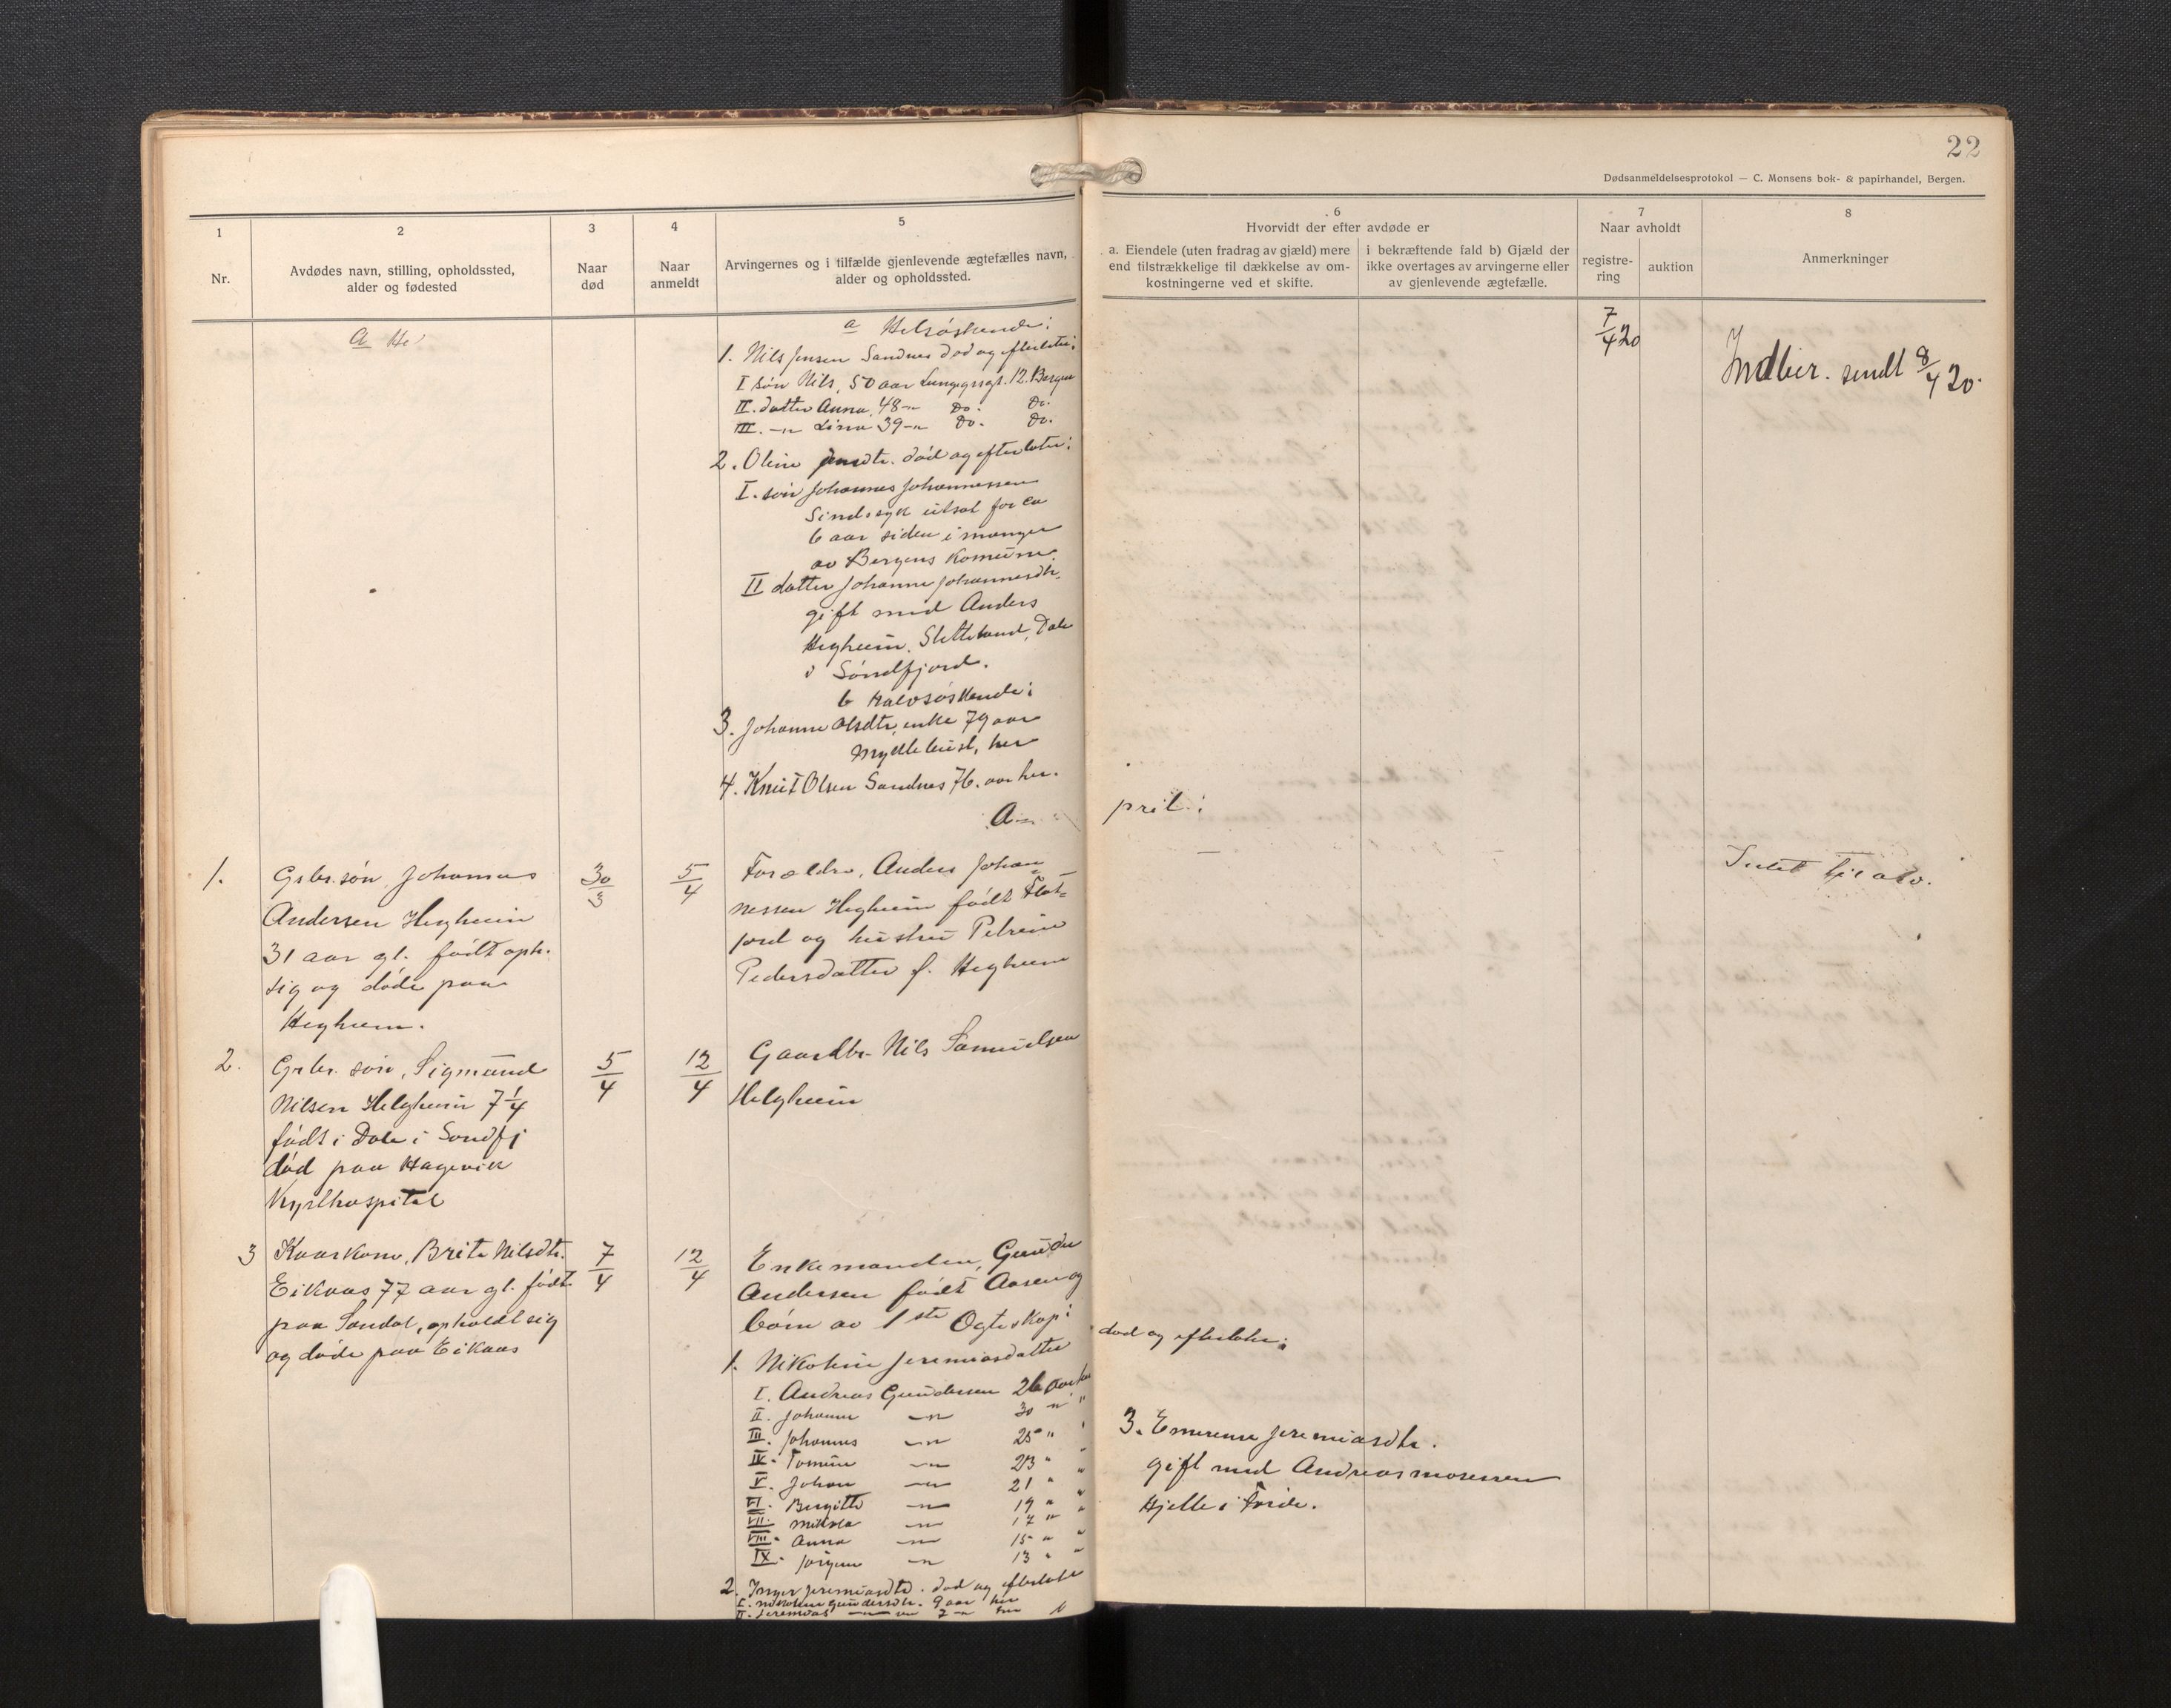 22
Dødsanmeldelsesprotokol — C. Monsens bok- & papirhandel, Bergen.
1
Nr.
2
Avdødes navn, stilling, opholdssted,
alder og fødested
3
Naar
død
4
Naar
anmeldt
5
Arvingernes og i tilfælde gjenlevende ægtefælles navn,
alder og opholdssted.
6
Hvorvidt der efter avdøde er
a. Eiendele (uten fradrag av gjæld) mere
end tilstrækkelige til dækkelse av om-
kostningerne ved et skifte.
i bekræftende fald b) Gjæld der
ikke overtages av arvingerne eller
av gjenlevende ægtefælle.
7
Naar avholdt
registre-
ring
auktion
8
Anmerkninger
a He
a Helsøskende:
1. Nils Jensen Sandnes død og efterlater:
I søn Nils, 50 aar 12. Bergen
II. datter Anna, 48 -"- Do. Do.
III. -"- Lina 39 -"- Do. Do.
2. Oline Jensdtr. død og efterlater:
I. søn Johannes Johannessen
Sindssyk utsat for ca
6 aar siden i Manger
av Bergens Komune.
II datter Johanne Johannesdtr.
gift med Anders
Hegheim, Dale
i Søndfjord.
b Halvsøskende:
3. Johanne Olsdtr, enke 79 aar
Myklebust, her
4. Knut Olsen Sandnes 76. aar her.
7/4 20
Indber. sendt 8/4 20.
A
pril:
1.
Grbr. søn, Johannes
Andersen Hegheim
31 aar gl. født oph.
sig og døde paa
Hegheim.
30/3
5/4
Forældre, Anders Johan-
nessen Hegheim født Flat-
jord og hustru Petrine
Pedersdatter f. Hegheim
Intet til arv.
2.
Grbr. søn, Sigmund
Nilsen Helgheim 7 1/4
født i Dale i Søndfj
død paa Hagevik
Kysthospital
5/4
12/4
Gaardbr. Nils Samuelsen
Helgheim
3
Kaarkone, Brite Nilsdtr.
Eikaas 77 aar gl. født
paa Sandal, opholdt sig
og døde paa Eikaas
7/4
12/4
Enkemanden, Gunder
Andersen født Aasen og
børn av 1ste Ogteskap:
1. Nikoline Jeremiasdatter
død og efterlater:
I. Andreas Gundersen 26 aar her
II. Johanne -"- 30 " "
III. Johannes -"- 25 " "
IV. -"- 23 " "
V. Johan -"- 21 " "
VI. Bergitte -"- 19 " "
VII. -"- 17 " "
VIII. Anna -"- 15 " "
IX. Jørgen -"- 13 " "
2. Inger Jeremiasdtr. død og efterlater
I. Nikoline Gundersdtr. 9 aar her
II. Jeremias -"- 7 -"- her
3. Emerense Jeremiasdtr.
gift med Andreas Mosessen
Hjelle i Førde.